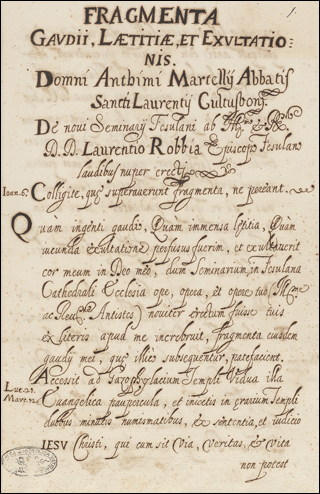 1
FRAGMENTA
GAUDII, LÆTITIÆ, ET EXULTATIO=
NIS.
Domni Anthimi Martellij Abbatis
Sancti Laurentij Cultusboni
De novi Seminarij Fesulani ab Ill.mo & R.mo
D. D. Laurentio Robbia Episcopo Fesulano
laudibus nuper erecti
Ioan. 6. Colligite, quę superaverunt fragmenta, ne pereant.
Quam ingenti gaudio, Quam immensa lętitia, Quàm
iucunda exultatione perfusus fuerim, et exultaverit
cor meum in Deo meo, dum Seminarium in Fesulana
Cathedrali Ecclesia ope, opera, et opere tuo (Ill.me
ac Rev.me Antistes) noviter erectum fuisse tuis
ex literis apud me increbruit, fragmenta eiusdem
gaudij mei, quę illico subsequentur, patefacient.
Accessit ad Gazophylacium Templi Vidua illa
Luc. 21.
Marc. 12.
Euangelica paupercula, et iniectis in ęrarium Templi
duobus minutis numismatibus, & sententia, et iudicio
IESU Christi, qui cum sit Via, Veritas, & Vita
non potest